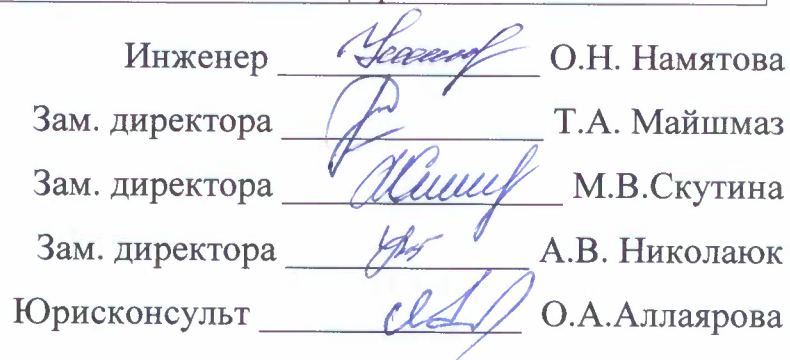 Инженер О.Н. Намятова
Зам. директора Т.А. Майшмаз
Зам. директора М.В.Скутина
Зам. директора А.В. Николаюк
Юрисконсульт О.А.Аллаярова